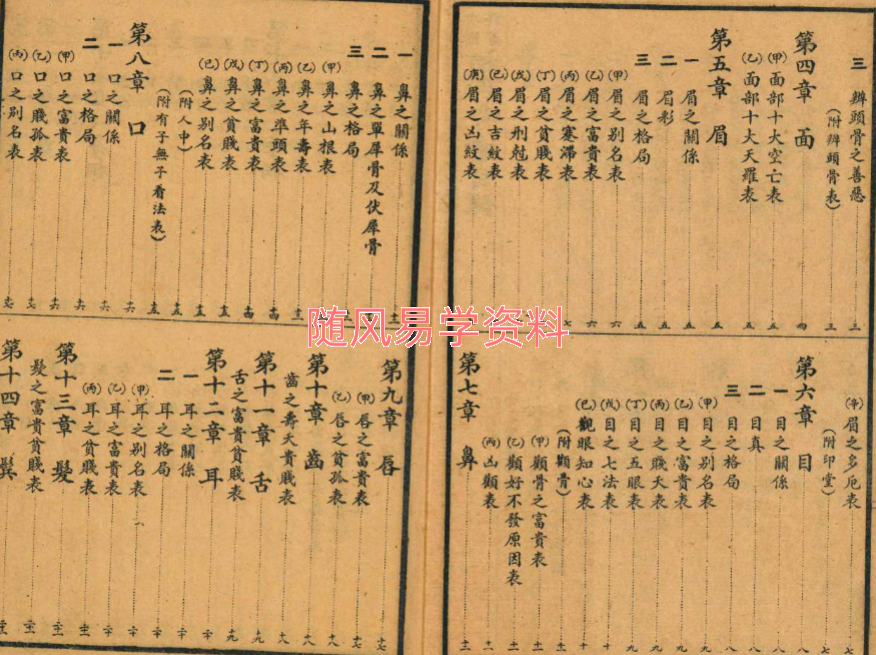 三 辨頭骨之善惡 三
(附辨頭骨表) 三
第四章 面 四
(甲)面部十大空亡表 五
(乙)面部十大天羅表 五
第五章 眉 五
一 眉之關係 五
二 眉彩 五
三 眉之格局 五
(甲)眉之别名表 六
(乙)眉之富貴表 六
(丙)眉之寒滯表 七
(丁)眉之貧賤表
(戊)眉之刑尅表
(己)眉之吉紋表
(庚)眉之凶紋表
(辛)眉之多厄表 七
(附印堂) 七
第六章 目 八
一 目之關係 八
二 目真 八
三 目之格局 八
(甲)目之别名表 八
(乙)目之富貴表 九
(丙)目之賤夭表 九
(丁)目之五眼表 九
(戊)目之七法表 十
(己)觀眼知心表 十
(附顴骨) 十
(甲)顴骨之富貴表 十一
(乙)顴好不發原因表 十一
(丙)凶顴表 十一
第七章 鼻 十二
一 鼻之關係
二 鼻之單犀骨及伏犀骨
三 鼻之格局
(甲)鼻之山根表
(乙)鼻之年壽表
(丙)鼻之準頭表 十四
(丁)鼻之富貴表 十四
(戊)鼻之貧賤表 十五
(己)鼻之别名表 十五
(附人中) 十五
(附有子無子看法表) 十五
第八章 口 十六
一 口之關係 十六
二 口之格局 十六
(甲)口之富貴表 十六
(乙)口之賤孤表 十七
(丙)口之别名表 十七
第九章 唇 十七
(甲)唇之富貴表 十七
(乙)唇之貧孤表 十八
第十章 齒 十八
齒之壽夭貴賤表 十八
第十一章 舌 十九
舌之富貴貧賤表 十九
第十二章 耳 二十
一 耳之關係 二十
二 耳之格局 二十
(甲)耳之别名表
(乙)耳之富貴表
(丙)耳之貧賤表
第十三章 髮
髮之富貴貧賤表
第十四章 鬓
随风易学资料